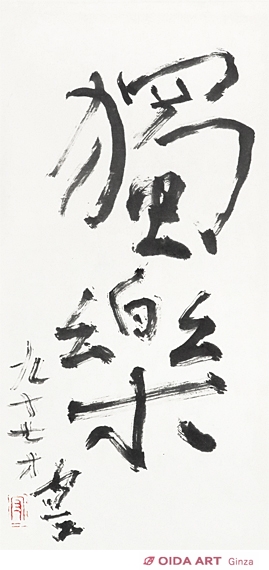 獨樂
九十七才
OIDA ART Ginza